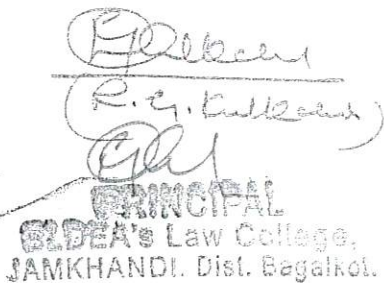 (R. G. Kulkarni)
PRINCIPAL
BLDEA's Law College,
JAMKHANDI. Dist. Bagalkot.